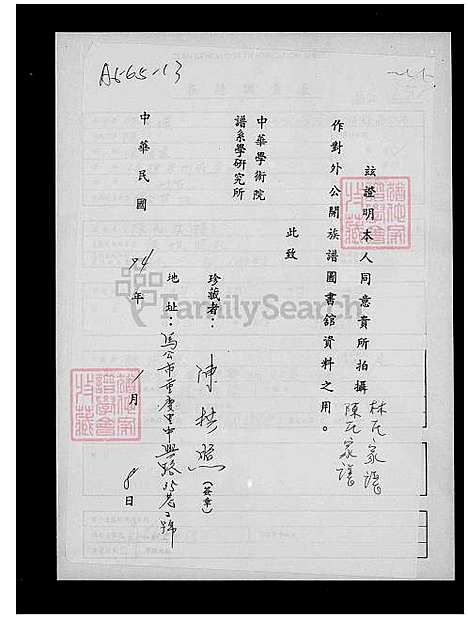 A565-13
茲證明本人同意貴所拍攝 林氏家譜 陳氏家譜
作對外公開族譜圖書舘資料之用。
此致
中華學術院
譜系學硏究所
珍藏者：陳 照 (簽章)
地址：馬公市重慶里中興路 巷 號
中華民國 74 年 1 月 8 日
FamilySearch